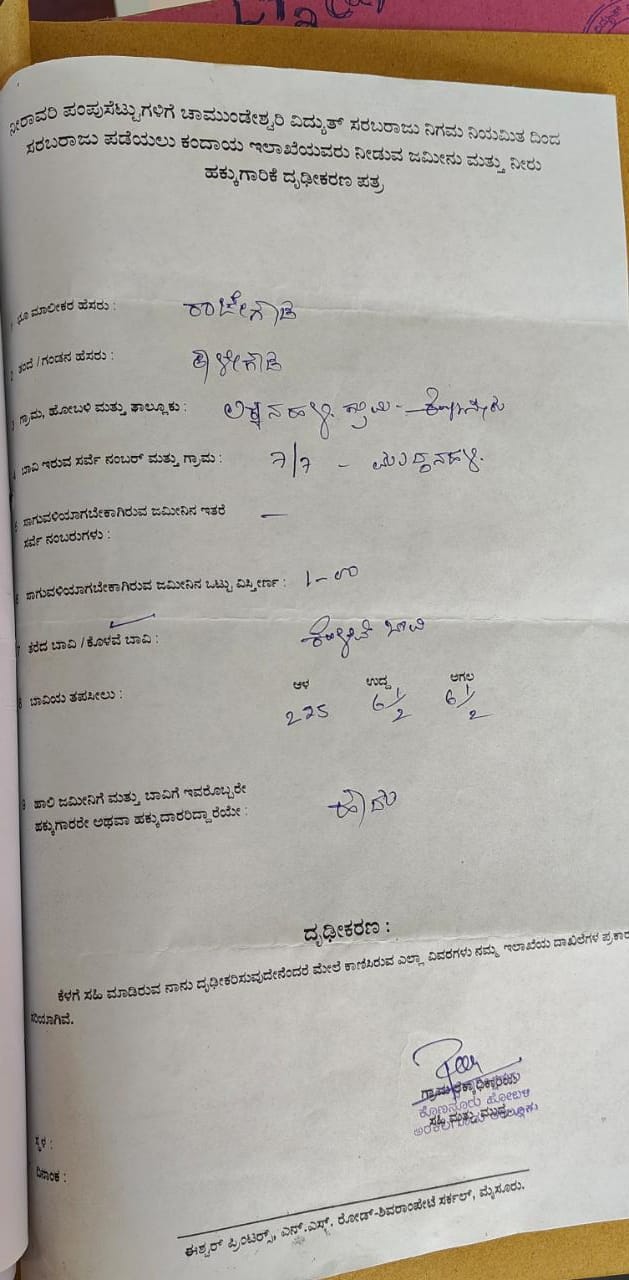 ನೀರಾವರಿ ಪಂಪುಸೆಟ್ಟುಗಳಿಗೆ ಚಾಮುಂಡೇಶ್ವರಿ ವಿದ್ಯುತ್ ಸರಬರಾಜು ನಿಗಮ ನಿಯಮಿತ ದಿಂದ
ಸರಬರಾಜು ಪಡೆಯಲು ಕಂದಾಯ ಇಲಾಖೆಯವರು ನೀಡುವ ಜಮೀನು ಮತ್ತು ನೀರು
ಹಕ್ಕುಗಾರಿಕೆ ದೃಢೀಕರಣ ಪತ್ರ
1 ಭೂ ಮಾಲೀಕರ ಹೆಸರು : ರಾಜೇಗೌಡ
2 ತಂದೆ / ಗಂಡನ ಹೆಸರು : ಕಾಳೇಗೌಡ
3 ಗ್ರಾಮ, ಹೋಬಳಿ ಮತ್ತು ತಾಲ್ಲೂಕು : ಗ್ರಾಮ -
4 ಬಾವಿ ಇರುವ ಸರ್ವೆ ನಂಬರ್ ಮತ್ತು ಗ್ರಾಮ : 7/7 - ಮುದ್ದನಹಳ್ಳಿ.
5 ಸಾಗುವಳಿಯಾಗಬೇಕಾಗಿರುವ ಜಮೀನಿನ ಇತರೆ —
ಸರ್ವೆ ನಂಬರುಗಳು :
6 ಸಾಗುವಳಿಯಾಗಬೇಕಾಗಿರುವ ಜಮೀನಿನ ಒಟ್ಟು ವಿಸ್ತೀರ್ಣ :
7 ತೆರೆದ ಬಾವಿ / ಕೊಳವೆ ಬಾವಿ : ಕೊಳವೆ ಬಾವಿ
ಆಳ ಉದ್ದ ಅಗಲ
8 ಬಾವಿಯ ತಪಸೀಲು : 225 6 1/2 6 1/2
9 ಹಾಲಿ ಜಮೀನಿಗೆ ಮತ್ತು ಬಾವಿಗೆ ಇವರೊಬ್ಬರೇ
ಹಕ್ಕುಗಾರರೇ ಅಥವಾ ಹಕ್ಕುದಾರರಿದ್ದಾರೆಯೇ : ಹೌದು
ದೃಢೀಕರಣ :
ಕೆಳಗೆ ಸಹಿ ಮಾಡಿರುವ ನಾನು ದೃಢೀಕರಿಸುವುದೇನೆಂದರೆ ಮೇಲೆ ಕಾಣಿಸಿರುವ ಎಲ್ಲಾ ವಿವರಗಳು ನಮ್ಮ ಇಲಾಖೆಯ ದಾಖಲೆಗಳ ಪ್ರಕಾರ
ಸರಿಯಾಗಿವೆ.
ಕೊಣನೂರು ಹೋಬಳಿ
ಸಹಿ ಮತ್ತು ಮುದ್ರೆ
ಸ್ಥಳ :
ದಿನಾಂಕ :
ಈಶ್ವರ್ ಪ್ರಿಂಟರ್ಸ್, ಎನ್.ಎಸ್. ರೋಡ್-ಶಿವರಾಂಪೇಟೆ ಸರ್ಕಲ್, ಮೈಸೂರು.